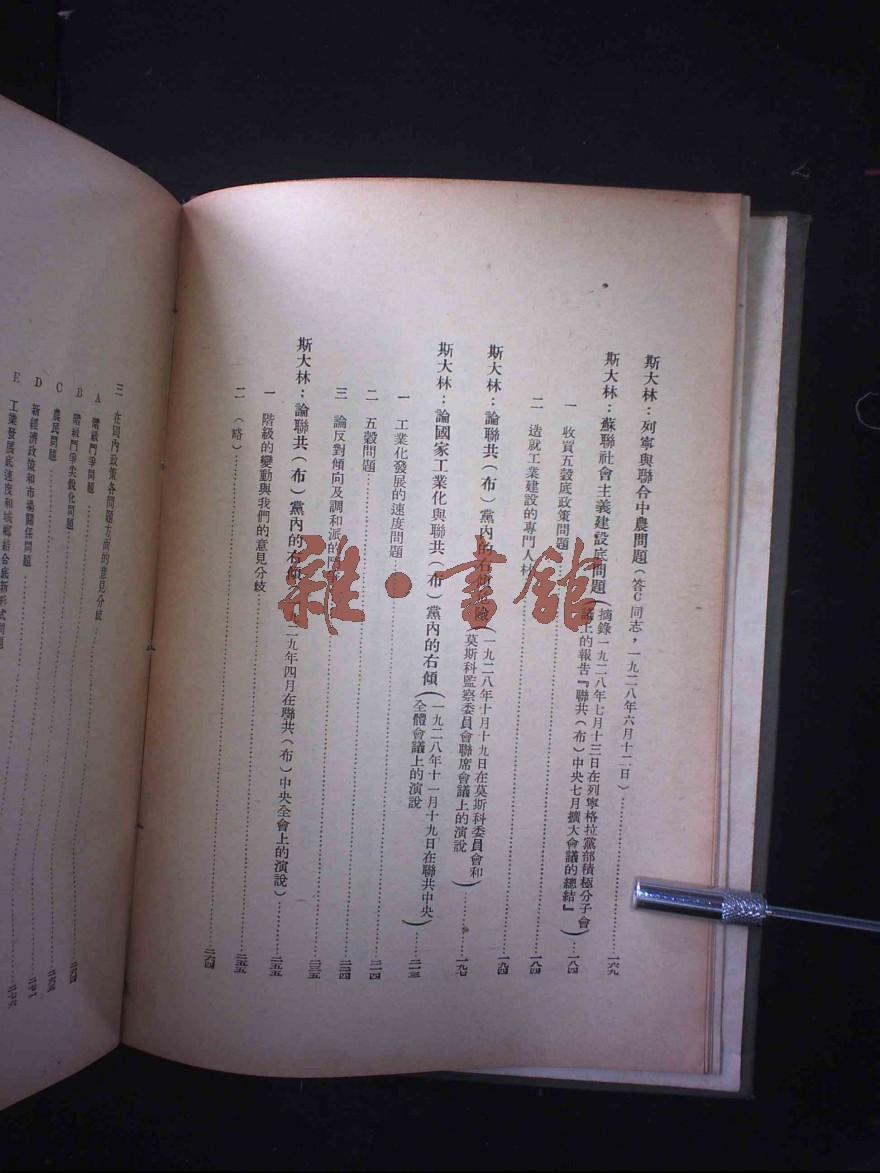 斯大林：列寧與聯合中農問題（答C同志，一九二八年六月十二日）……一六九
斯大林：蘇聯社會主義建設底問題（摘錄一九二八年七月十三日在列寧格拉黨部積極分子會
議上的報告『聯共（布）中央七月擴大會議的總結』）……一八四
一 收買五穀底政策問題……一八四
二 造就工業建設的專門人材……一九四
斯大林：論聯共（布）黨內的右傾危險（一九二八年十月十九日在莫斯科委員會和
莫斯科監察委員會聯席會議上的演說）……一九七
斯大林：論國家工業化與聯共（布）黨內的右傾（一九二八年十一月十九日在聯共中央
全體會議上的演說）……二一三
一 工業化發展的速度問題……二一四
二 五穀問題……二二四
三 論反對傾向及調和派的鬥……二三五
斯大林：論聯共（布）黨內的右傾 一九二九年四月在聯共（布）中央全會上的演說）……二五五
一 階級的變動與我們的意見分歧……二五五
二 （略）……二六四
三 在國內政策各問題方面的意見分歧
A 階級鬥爭問題
B 階級鬥爭尖銳化問題
C 農民問題
D 新經濟政策和市場關係問題……二七一
E 工業發展底速度和城鄉結合底新形式問題……二七六
雜·書館